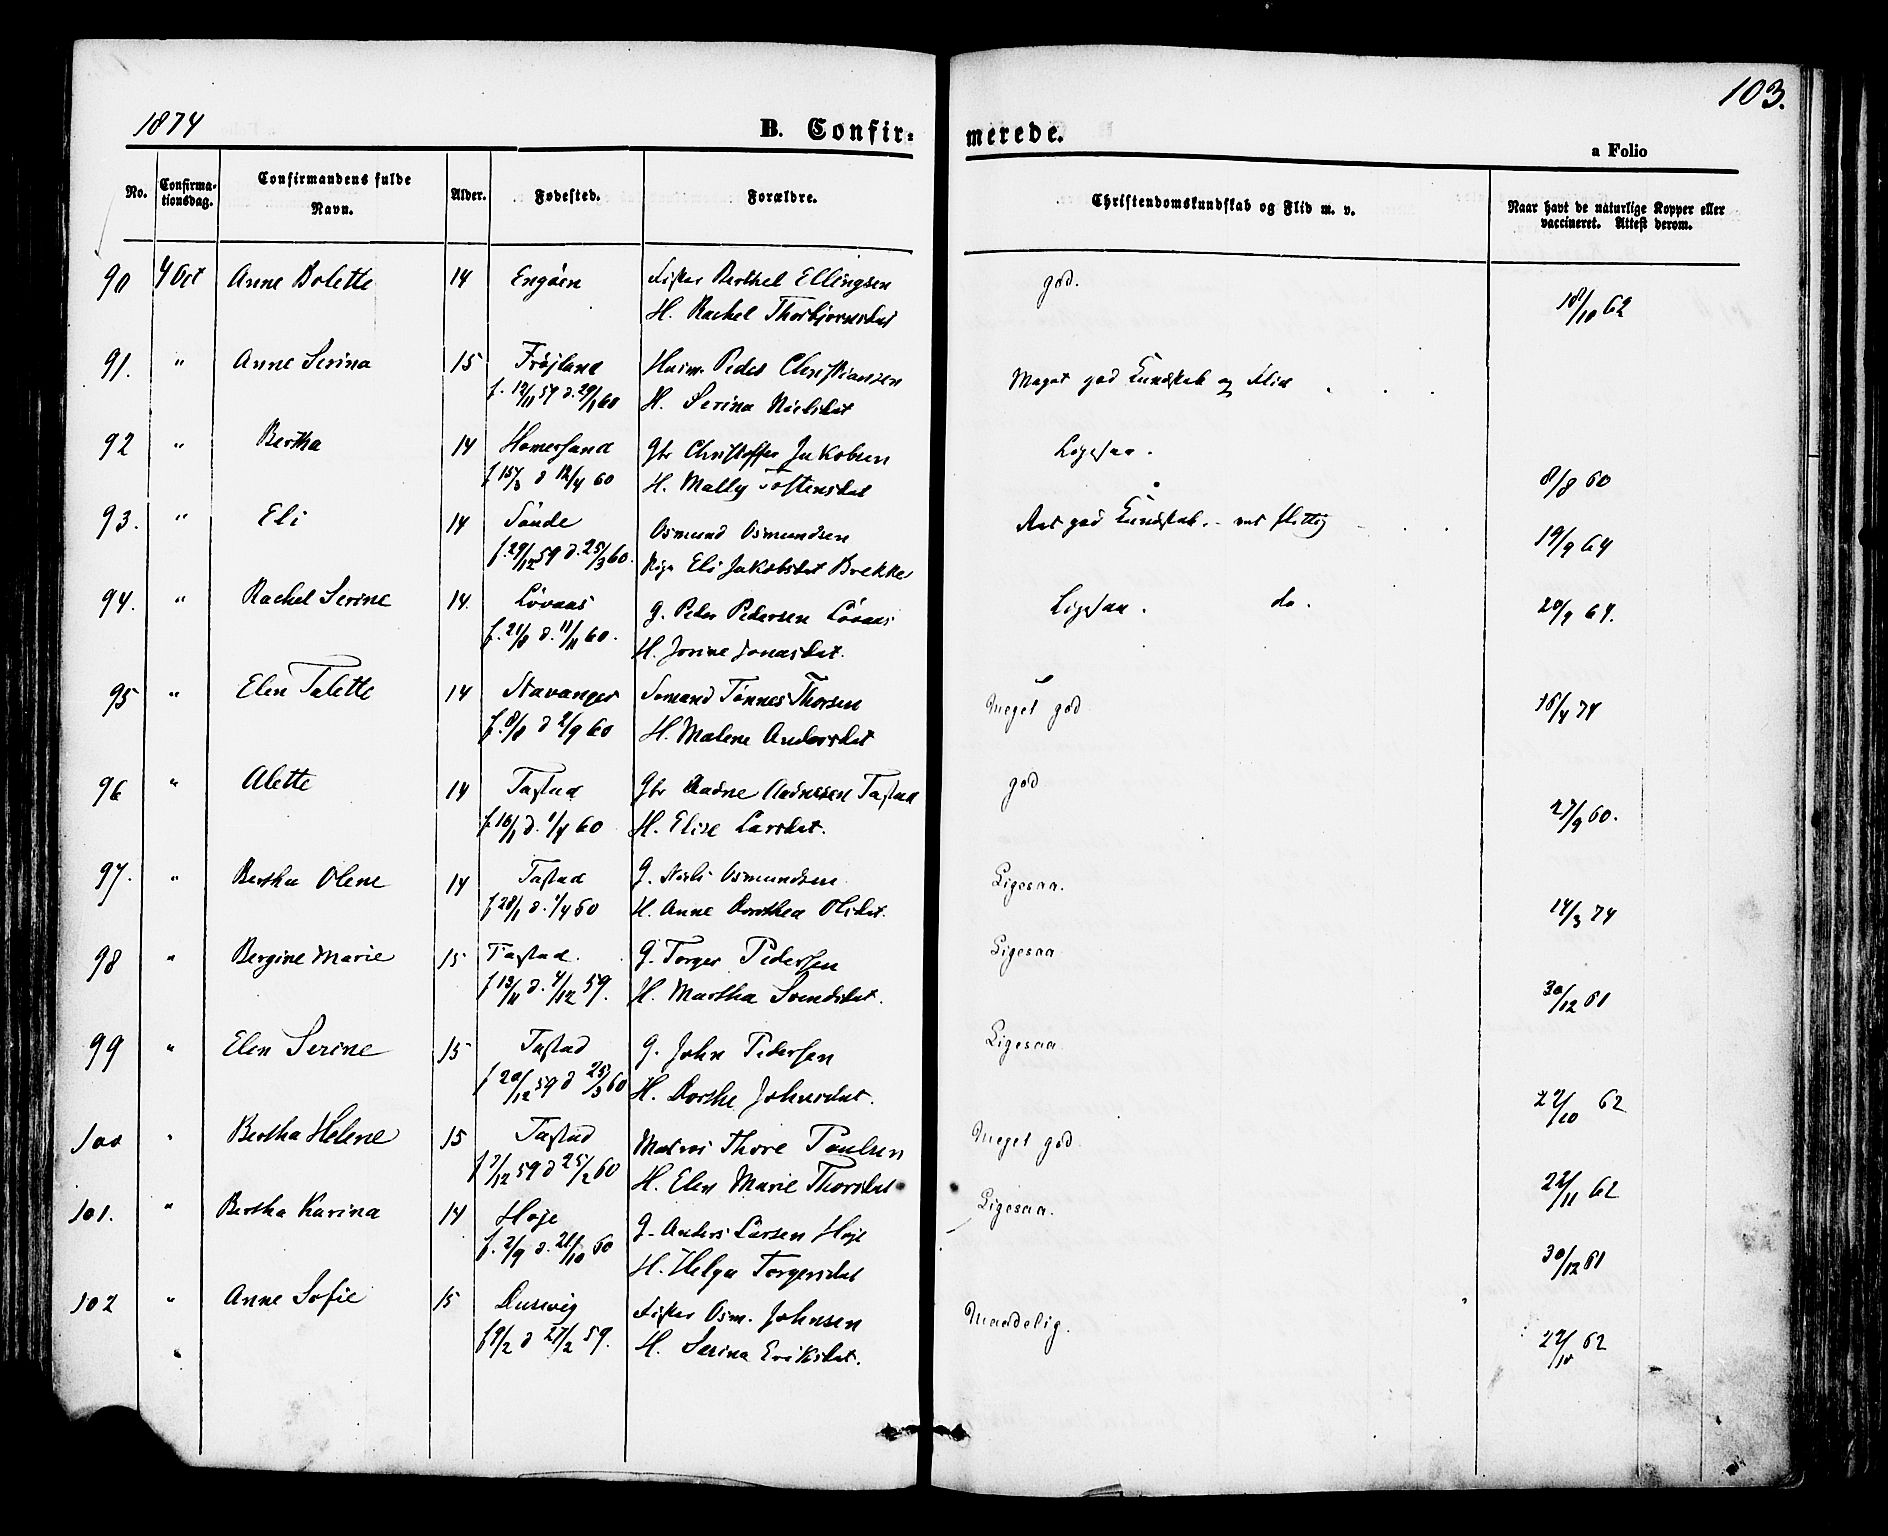 103.
1874
B. Confir-
merede.
a Folio
No.
Confirma-
tionsdag.
Confirmandens fulde
Navn.
Alder.
Fødested.
Forældre.
Christendomskundskab og Flid m. v.
Naar havt de naturlige Kopper eller
vaccineret. Attest derom.
90 4 Oct Anne Bolette 14 Engøen Fisker Berthel Ellingsen god. 18/10 62
H. Rachel Thorbjørnsdat
91. " Anne Serina 15 Frøjland Peder Christiansen Meget god Kundskab og Flid
f. 12/11 59 d. 29/1 60 H. Serina Nielsdat
92 " Bertha 14 Homersand Gbr Christoffer Jakobsen Ligesaa. 8/8 60
d 12/4 60 H. Mally Tostensdat
93. " Eli 14 Sunde Osmund Osmundsen god Kundskab. flittig 19/9 64
f. 29/12 59 d. 25/3 60. Eli Jakobsdat Brekke
94. " Rachel Serine 14. Løvaas G. Peder Pedersen Løvaas Ligesaa. do. 20/9 64.
f. 21/8 d. 11/11 60. H. Jorine Jonasdat.
95 " Elen Talette 14 Stavanger Sømand Tønnes Thorsen Meget god 16/4 74
f. 8/8 d 2/9 60 H. Malene Andersdat
96 " Alette 14 Tastad Gbr Aadne Aadnesen Tastad god 27/9 60.
f. 16/1 d. 1/4 60 H. Elise Larsdat.
97. " Bertha Olene 14 Tastad G. Niels Osmundsen Ligesaa. 14/3 74
f 28/1 d. 1/4 60 H. Anne Dorothea Olsdat.
98 " Bergine Marie 15 Tastad. G. Torger Pedersen Ligesaa 30/12 61
f 13/11 d. 4/12 59. H. Martha Svendsdat.
99 " Elen Serine 15 Tastad G. John Pedersen Ligesaa 22/10 62
f 20/12 59 d 25/3 60 H. Dorthe Johnsdat.
100 " Bertha Helene 15 Tastad Matros Thore Paulsen Meget god. 22/11 62
f 7/12 59 d 25/2 60 H. Elen Marie Thorsdat
101. " Bertha Karina 14 Høje G. Anders Larsen Høje Ligesaa. 30/12 61
f. 2/9 d. 21/10 60 H. Helga Torgersdat
102 " Anne Sofie 15 Dusevig Fisker Osm. Johnsen Maadelig. 22/10 62
f 9/2 d 27/2 59. H. Serina Eriksdat.
"